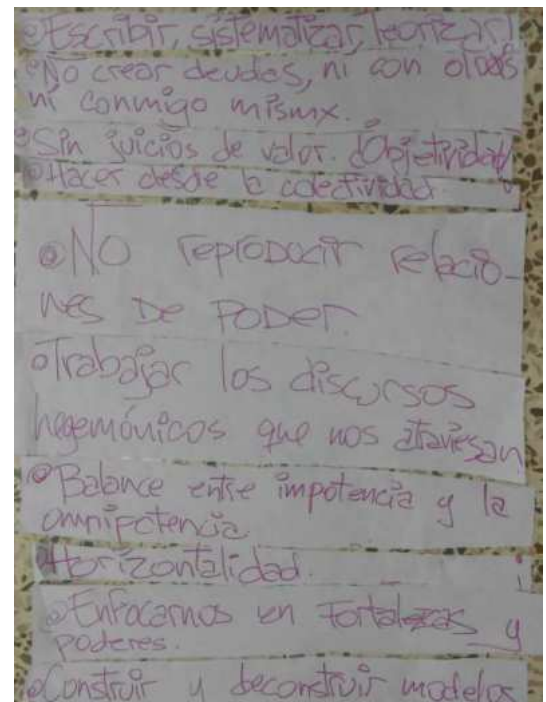 • Escribir, sistematizar, teorizar!
• No crear deudas, ni con otrxs
ni conmigo mismx.
• Sin juicios de valor. ¿Objetividad?
• Hacer desde la colectividad
• NO reproducir relacio-
nes de poder.
• Trabajar los discursos
hegemónicos que nos atraviesan
• Balance entre impotencia y la
omnipotencia
• Horizontalidad.
• Enfocarnos en Fortalezas y
poderes.
• Construir y deconstruir modelos